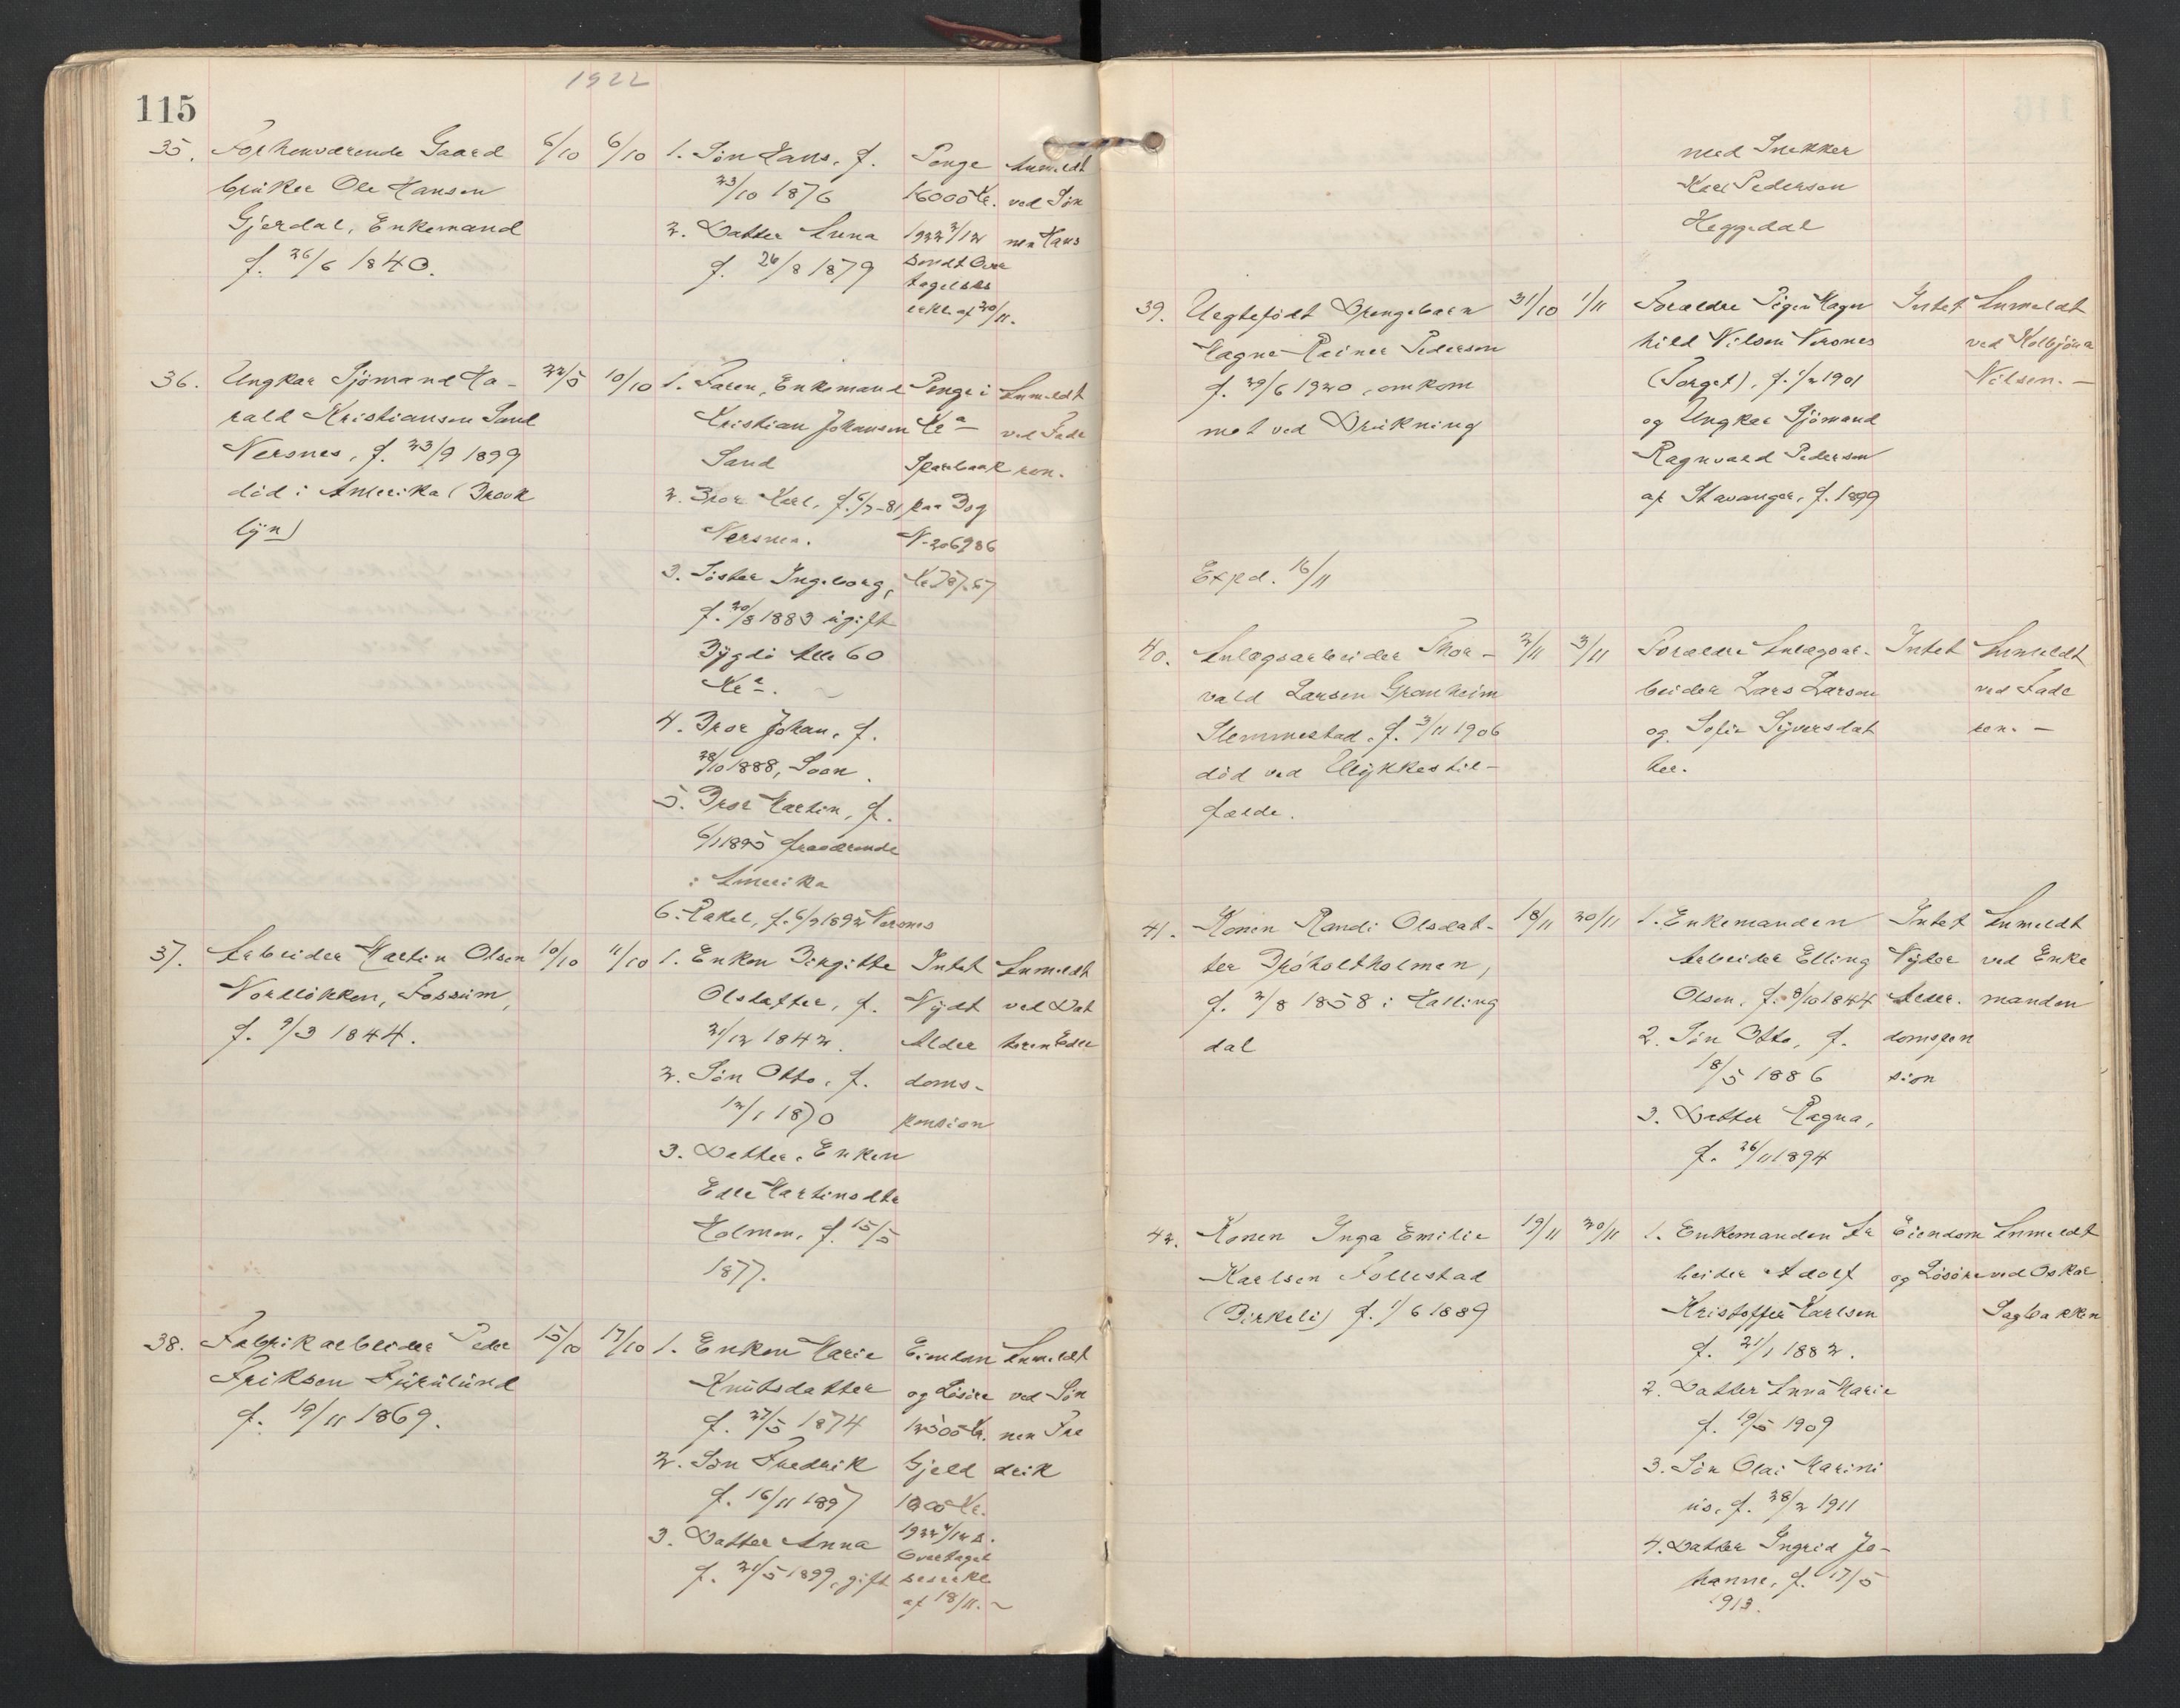 1922
115
35. Forhenværende Gaard 6/10 6/10
bruker Ole Hansen
Gjerdal, Enkemand
f. 26/6 1840.
1. Søn Hans, f.
23/10 1876
2. Datter Anna
f. 26/8 1879
Penge
16000 Kr.
1922 2/12
sendt Over
tagelses
erkl. af 20/11.
Anmeldt
ved Søn
nen Hans
36. Ungkar Sjömand Ha- 22/5 10/10
rald Kristiansen Sand
Nersnes, f. 23/9 1899
död i Amerika (Brook
lyn)
1. Faren, Enkemand
Kristian Johansen
Sand
2. Bror Karl, f. 6/7-81
Nersnes.
3. Söster Ingeborg,
f. 20/8 1883 ugift
Bygdö Alle 60
Kra.
4. Bror Johan, f.
28/10 1888, Soon.
5. Bror Martin, f.
6/1 1895 fraværende
i Amerika
6. Rakel, f. 6/9 1892 Nersnes
Penge i
Kra
Sparebank
paa Bog
N. 206986
Anmeldt
ved Fade
ren.
37. Arbeider Martin Olsen 10/10 11/10
Nordlökken, Fossum,
f. 9/3 1844.
1. Enken Birgitte
Olsdatter, f.
31/12 1842.
2. Søn Otto, f.
12/1 1870
3. Datter, Enken
Edle Martinsdtr
Holmen, f. 15/5
1877.
Intet
Nydt
Alder
doms-
pension
Anmeldt
ved Dat
teren Edle
38. Fabrikarbeider Peder 15/10 17/10
Eriksen Furulund
f. 19/11 1869.
1. Enken Marie
Knutsdatter
f. 27/5 1874
2. Søn Fredrik
f. 16/11 1897
3. Datter Anna
f. 21/5 1899, gift
Eiendom
og Lösöre
12500 Kr.
Gjeld
1000 Kr.
1922 2/12 s.
Overtagel
seserkl.
af 18/11.
Anmeldt
ved Søn
nen Fre
drik
med Snekker
Karl Pedersen
Heggedal
39. Uegtefödt Drengebarn 31/10 1/11
Magne Reiner Pedersen
f. 29/6 1920, omkom
met ved Drukning
Exped. 16/11
Forældre Pigen Magn
hild Nilsen Nersnes
(Torget), f. 1/2 1901
og Ungkar Sjömand
Ragnvald Pedersen
af Stavanger, f. 1899
Intet
Anmeldt
ved Kolbjörn
Nilsen. —
40. Anlægsarbeider Thor- 2/11 3/11
vald Larsen Granheim
Slemmestad, f. 3/11 1906
död ved Ulykkestil-
fælde.
Forældre Anlægsar-
beider Lars Larsen
og Sofie Syversdat
ter.
Intet
Anmeldt
ved Fade
ren. —
41. Konen Randi Olsdat- 18/11 20/11
ter Bröholtholmen,
f. 2/8 1858 i Halling
dal
1. Enkemanden
Arbeider Elling
Olsen, f. 8/10 1844
2. Søn Otto, f.
18/5 1886
3. Datter Ragna,
f. 26/11 1894
Intet
Nyder
Alder.
domspen
sion
Anmeldt
ved Enke
manden
42. Konen Inga Emilie 19/11 20/11
Karlsen Follestad
(Birkeli) f. 1/6 1889
1. Enkemanden Ar
beider Adolf
Kristoffer Karlsen
f. 21/1 1882.
2. Datter Anna Marie
f. 19/5 1909
3. Søn Olai Marini
us, f. 28/2 1911
4. Datter Ingrid Jo-
hanne, f. 17/5
1913.
Eiendom
og Lösöre
Anmeldt
ved Oskar
Sagbakken